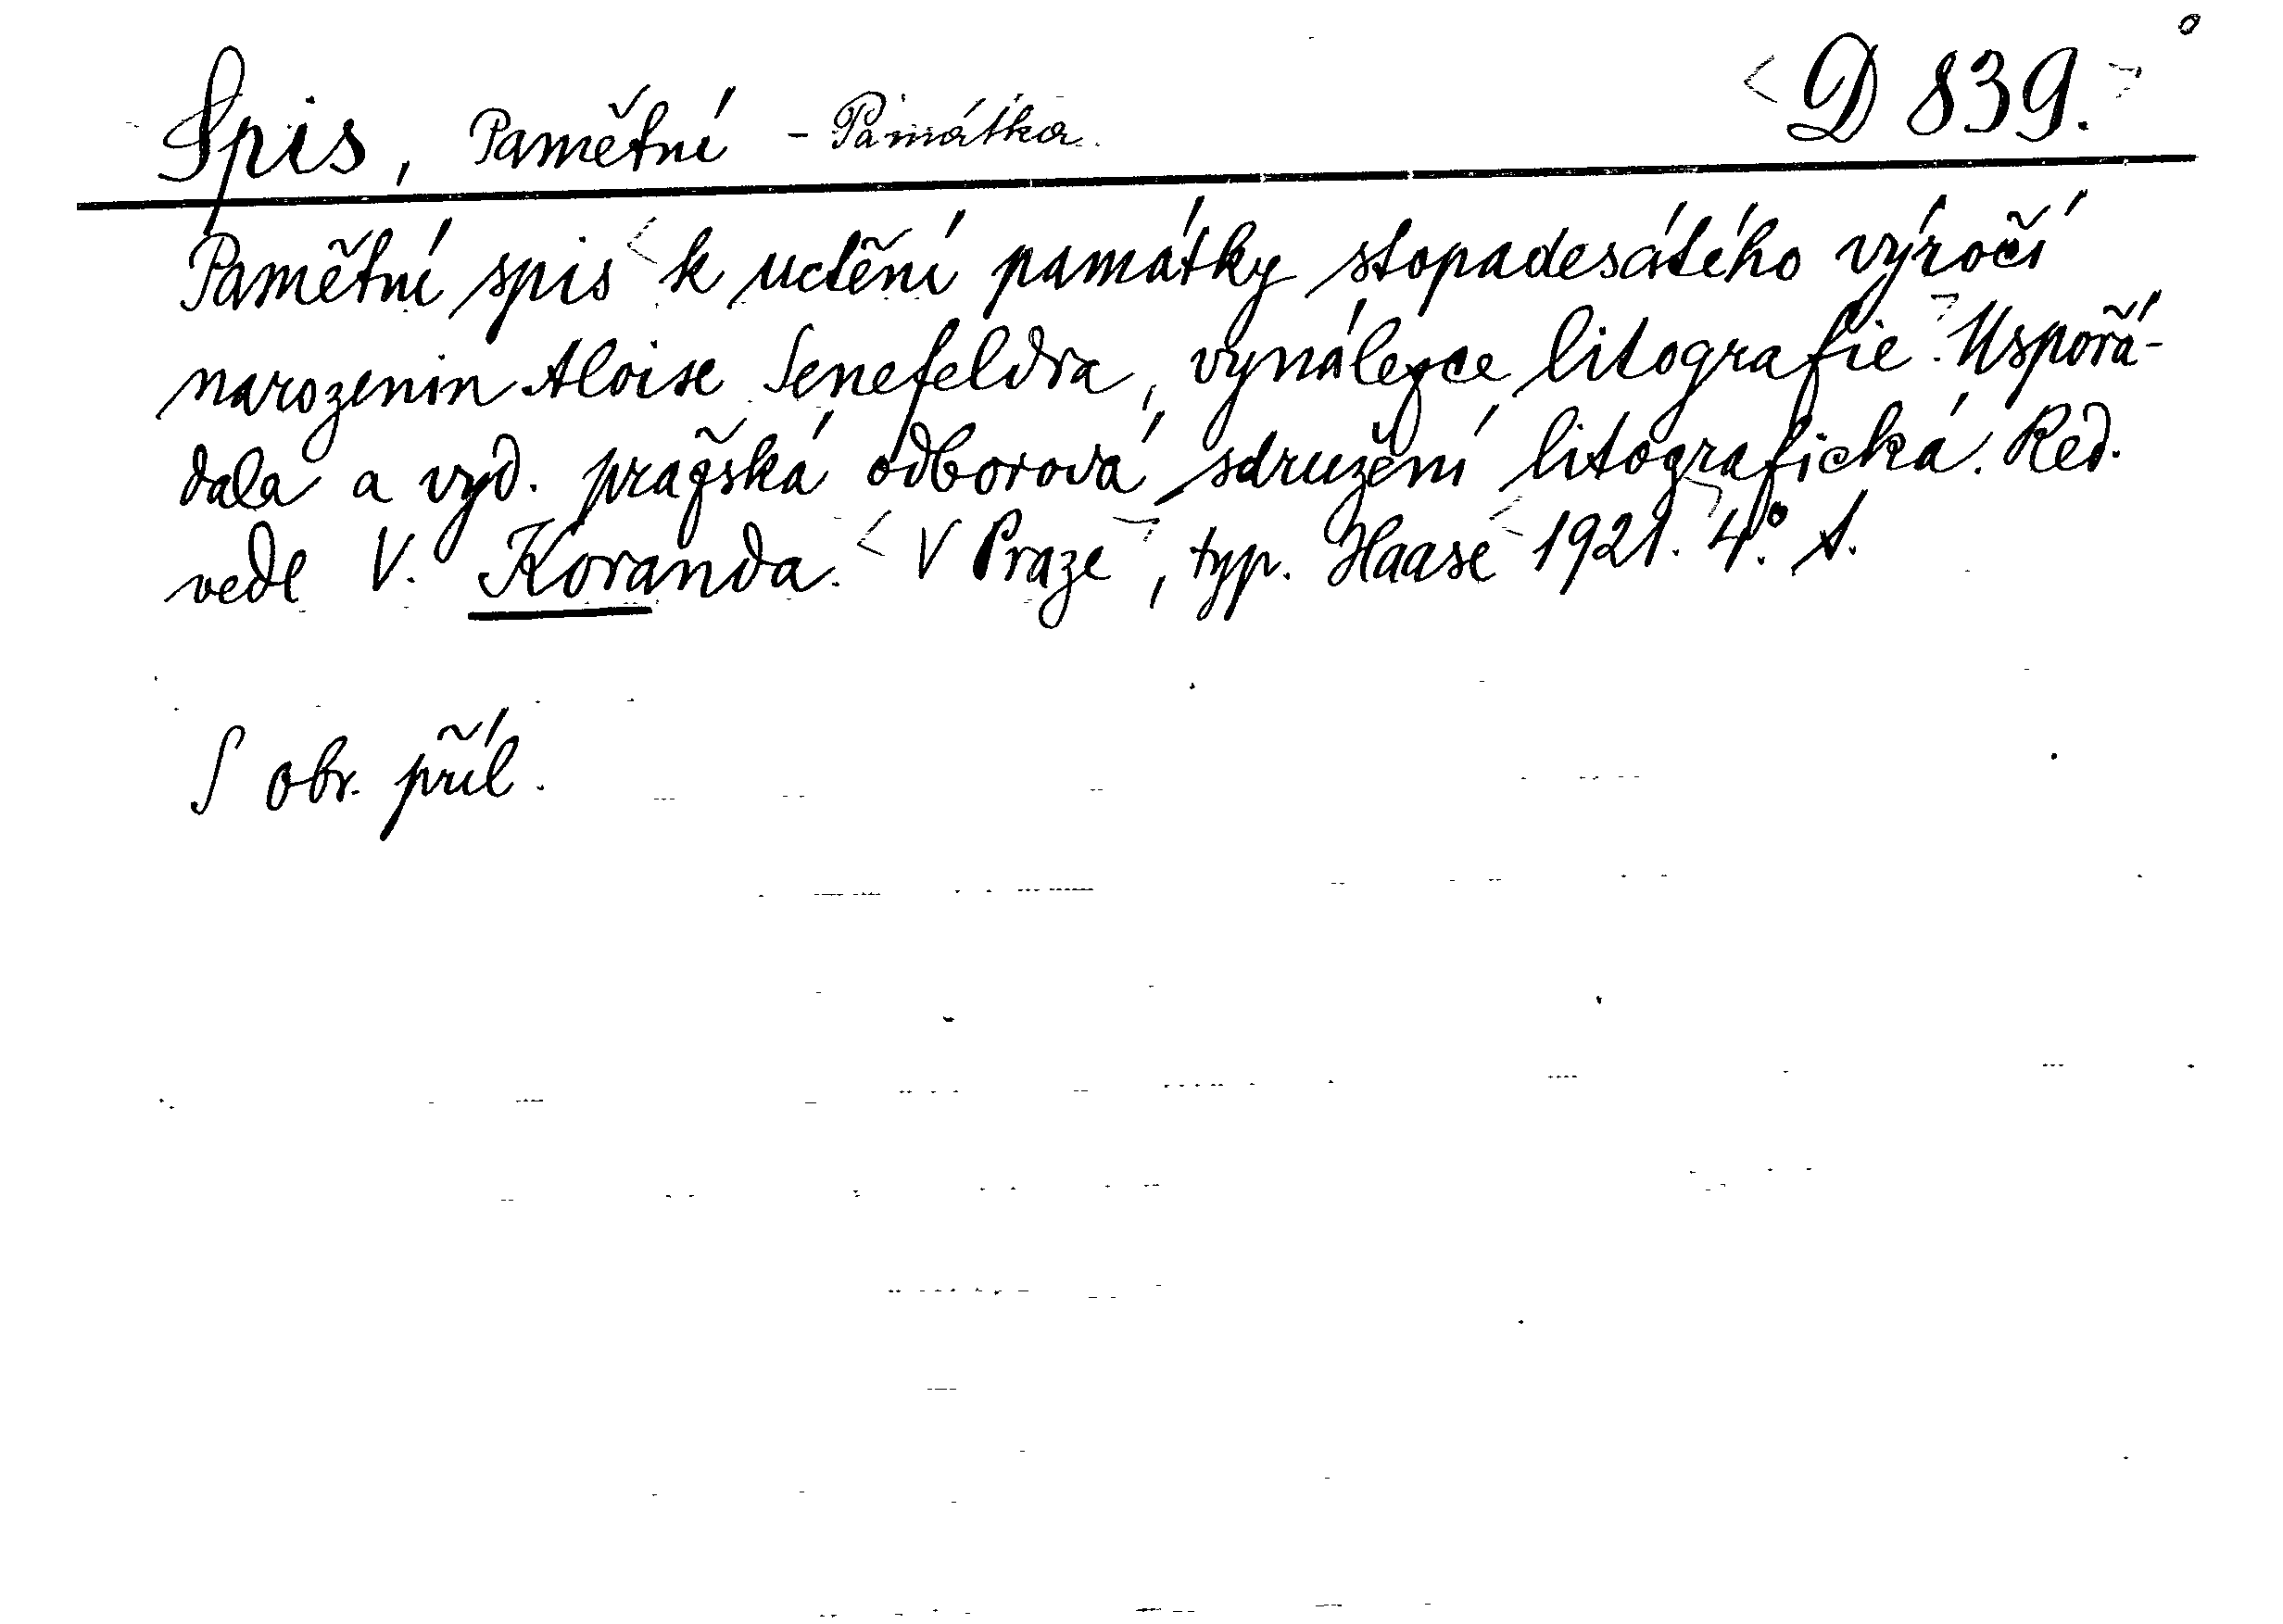 Spis, Pamětní - Památka. D 839.
Pamětní spis k uctění památky stopadesátého výročí
narozenin Aloise Senefeldra, vynálezce litografie. Uspořá-
dala a vyd. pražská odborová sdružení litografická. Red.
vedl V. Koranda. V Praze, typ. Haase 1921. 4.°
S obr. příl.